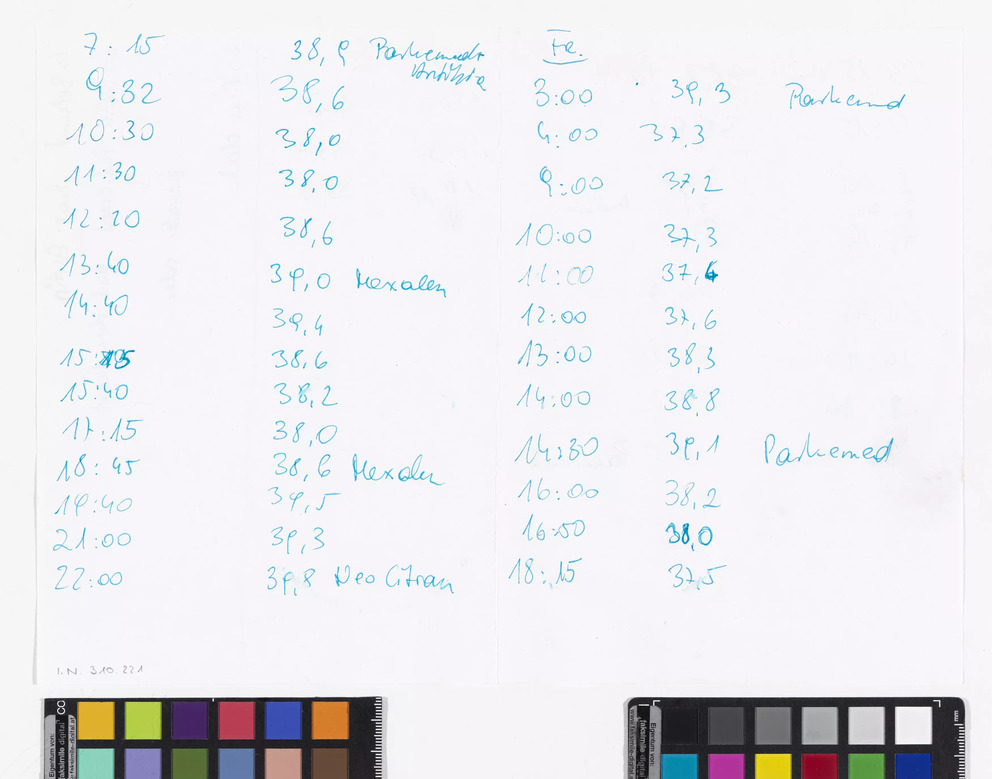 7:15 38,9 Parkemed+
Antibio
9:32 38,6
10:30 38,0
11:30 38,0
12:20 38,6
13:40 39,0 Mexalen
14:40 39,4
15:15 38,6
15:40 38,2
17:15 38,0
18:45 38,6 Mexalen
19:40 39,5
21:00 39,3
22:00 39,8 Neo Citran
I.N. 310.221
Fr.
3:00 39,3 Parkemed
4:00 37,3
9:00 37,2
10:00 37,3
11:00 37,4
12:00 37,6
13:00 38,3
14:00 38,8
14:30 39,1 Parkemed
16:00 38,2
16:50 38,0
18:15 37,5
CC
Eigentum von:
faksimile digital
Eigentum von:
faksimile digital
mm